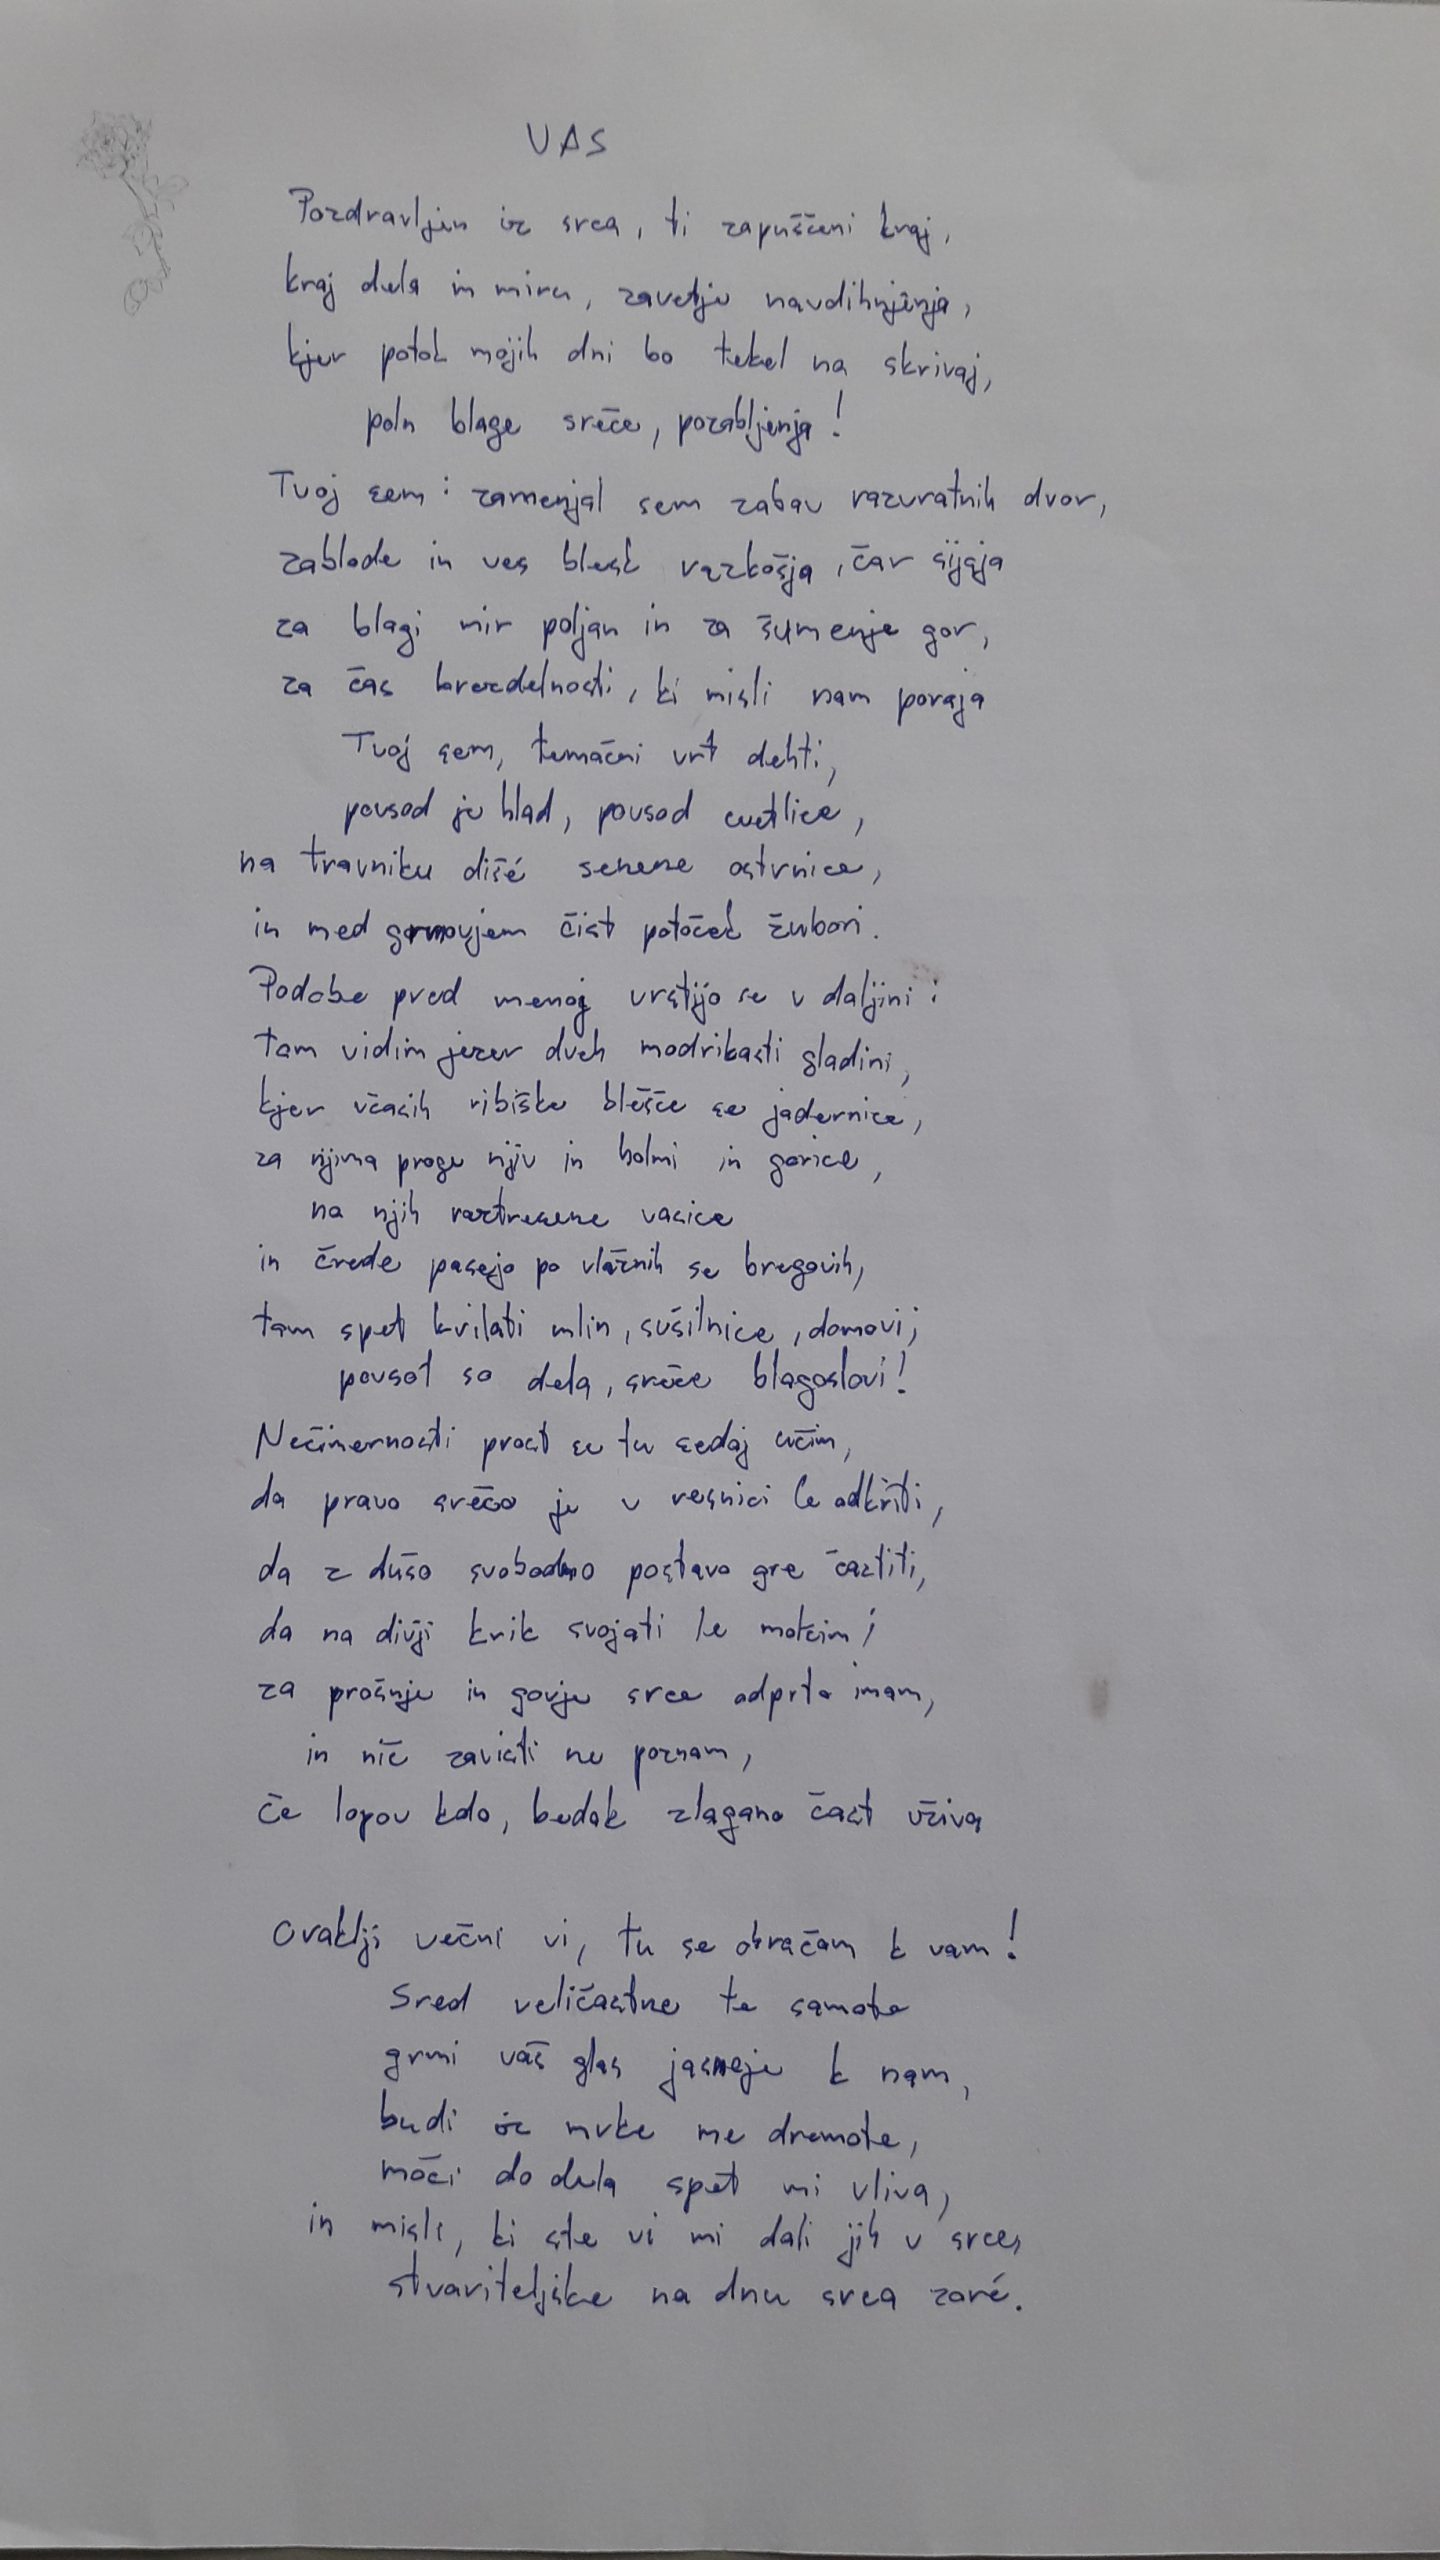 VAS
Pozdravljen iz srca, ti zapuščeni kraj,
kraj dela in miru, zavetje navdihnjenja,
kjer potok mojih dni bo tekel na skrivaj,
poln blage sreče, pozabljenja!
Tvoj sem: zamenjal sem zabav razvratnih dvor,
zablode in ves blesk razkošja, čar sijaja
za blagi mir poljan in za šumenje gor,
za čas brezdelnosti, ki misli nam poraja
Tvoj sem, temačni vrt dehti,
povsod je hlad, povsod cvetlice,
na travniku dišé senene ostrnice,
in med grmovjem čist potoček žubori.
Podobe pred menoj vrstijo se v daljini:
tam vidim jezer dveh modrikasti gladini,
kjer včasih ribiške blešče se jadernice,
za njima proge njiv in holmi in gorice,
na njih raztresene vasice
in črede pasejo po vlažnih se bregovih,
tam spet krilati mlin, sušilnice, domovi;
povsot so dela, sreče blagoslovi!
Nečimernosti prost se tu sedaj učim,
da pravo srečo je v resnici le odkriti,
da z dušo svobodno postavo gre častiti,
da na divji krik svojati le molčim;
za prošnje in govje srce odprto imam,
in nič zavisti ne poznam,
če lopov kdo, bedak zlagano čast uživa
Oraklji večni vi, tu se obračam k vam!
Sred veličastne te samote
grmi vaš glas jasneje k nam,
budi iz mrke me dremote,
moči do dela spet mi vliva,
in misli, ki ste vi mi dali jih v srce,
stvariteljske na dnu srca zoré.